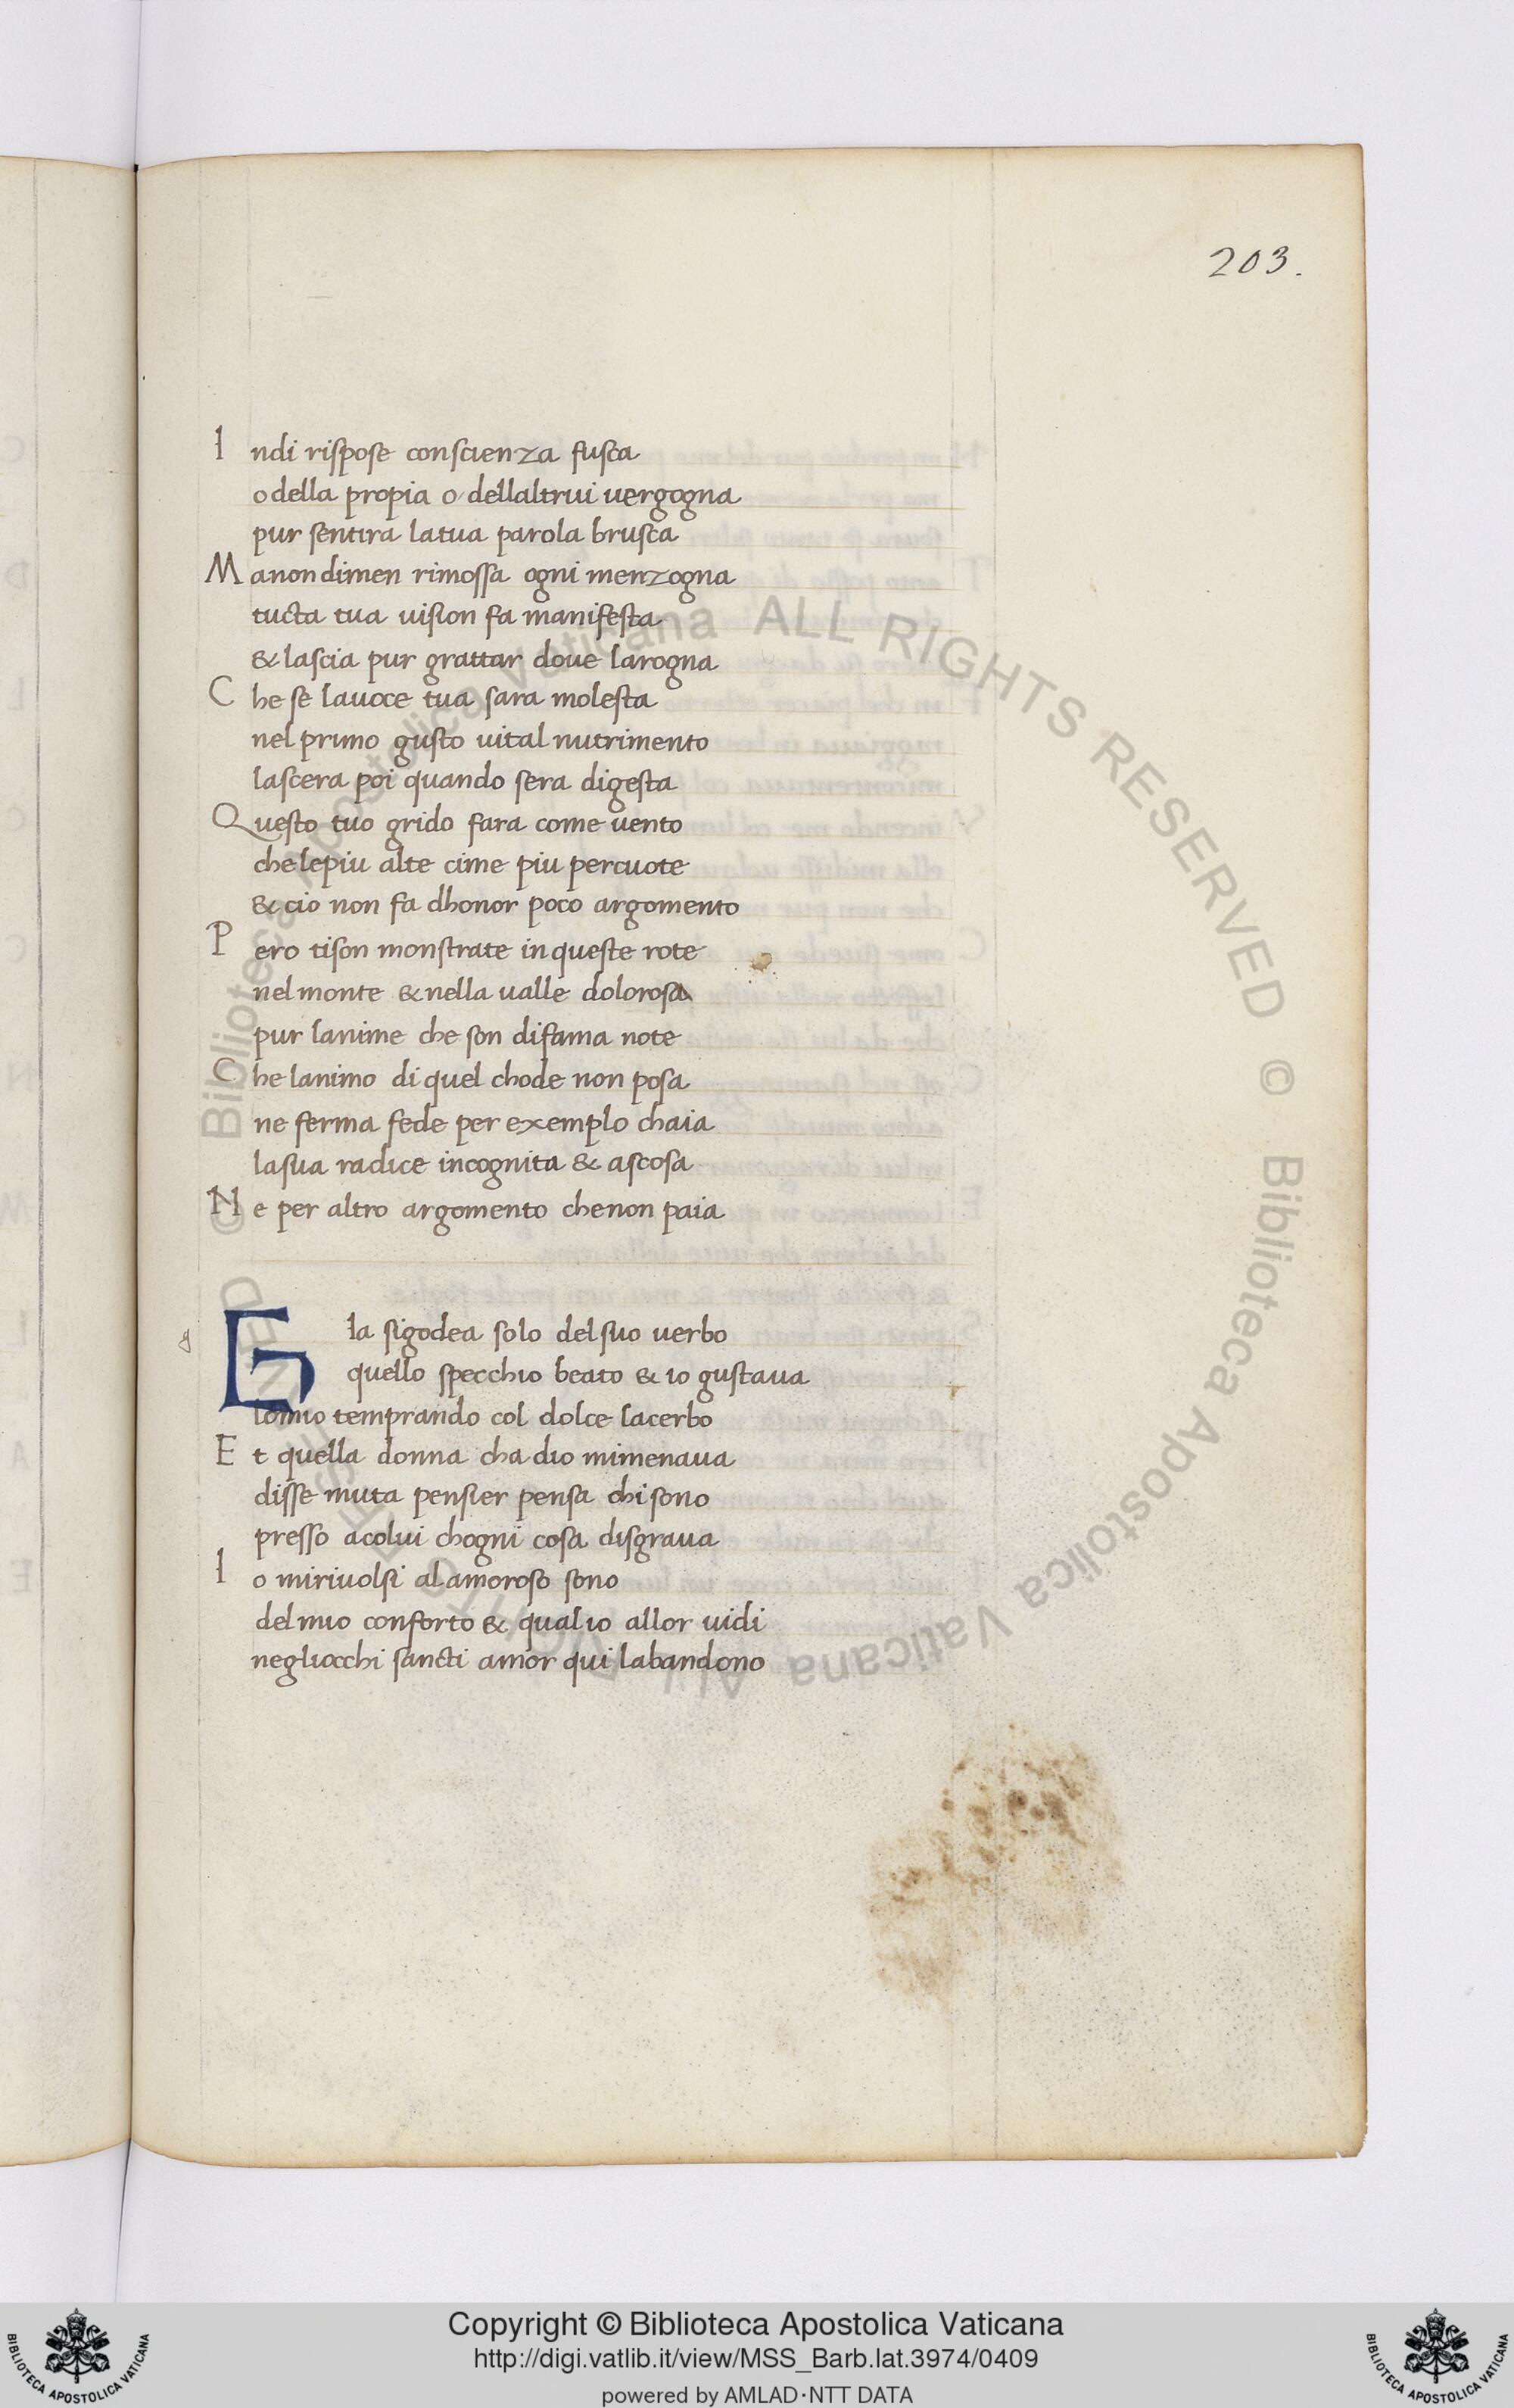 203.
Indi rispose conscienza fusca
o della propia o dellaltrui uergogna
pur sentira latua parola brusca
Manondimen rimossa ogni menzogna
tucta tua uision fa manifesta
& lascia pur grattar doue larogna
Che se lauoce tua sara molesta
nel primo gusto uital nutrimento
lascera poi quando sera digesta
Questo tuo grido fara come uento
che lepiu alte cime piu percuote
& cio non fa dhonor poco argomento
Pero tison monstrate in queste rote
nel monte & nella ualle dolorosa
pur lanime che son difama note
Che lanimo di quel chode non posa
ne ferma fede per exemplo chaia
lasua radice incognita & ascosa
Ne per altro argomento che non paia
Gia sigodea solo del suo uerbo
quello specchio beato & io gustaua
lo mio temprando col dolce lacerbo
Et quella donna cha dio mimenaua
disse muta pensier pensa chi sono
presso acolui chogni cosa disgraua
Io miriuolsi al amoroso sono
del mio conforto & qual io allor uidi
negliocchi sancti amor qui labandono
© Biblioteca Apostolica Vaticana ALL RIGHTS RESERVED © Biblioteca Apostolica Vaticana ALL RIGHTS RESERVED
Copyright © Biblioteca Apostolica Vaticana
http://digi.vatlib.it/view/MSS_Barb.lat.3974/0409
powered by AMLAD·NTT DATA
BIBLIOTECA APOSTOLICA VATICANA
BIBLIOTECA APOSTOLICA VATICANA